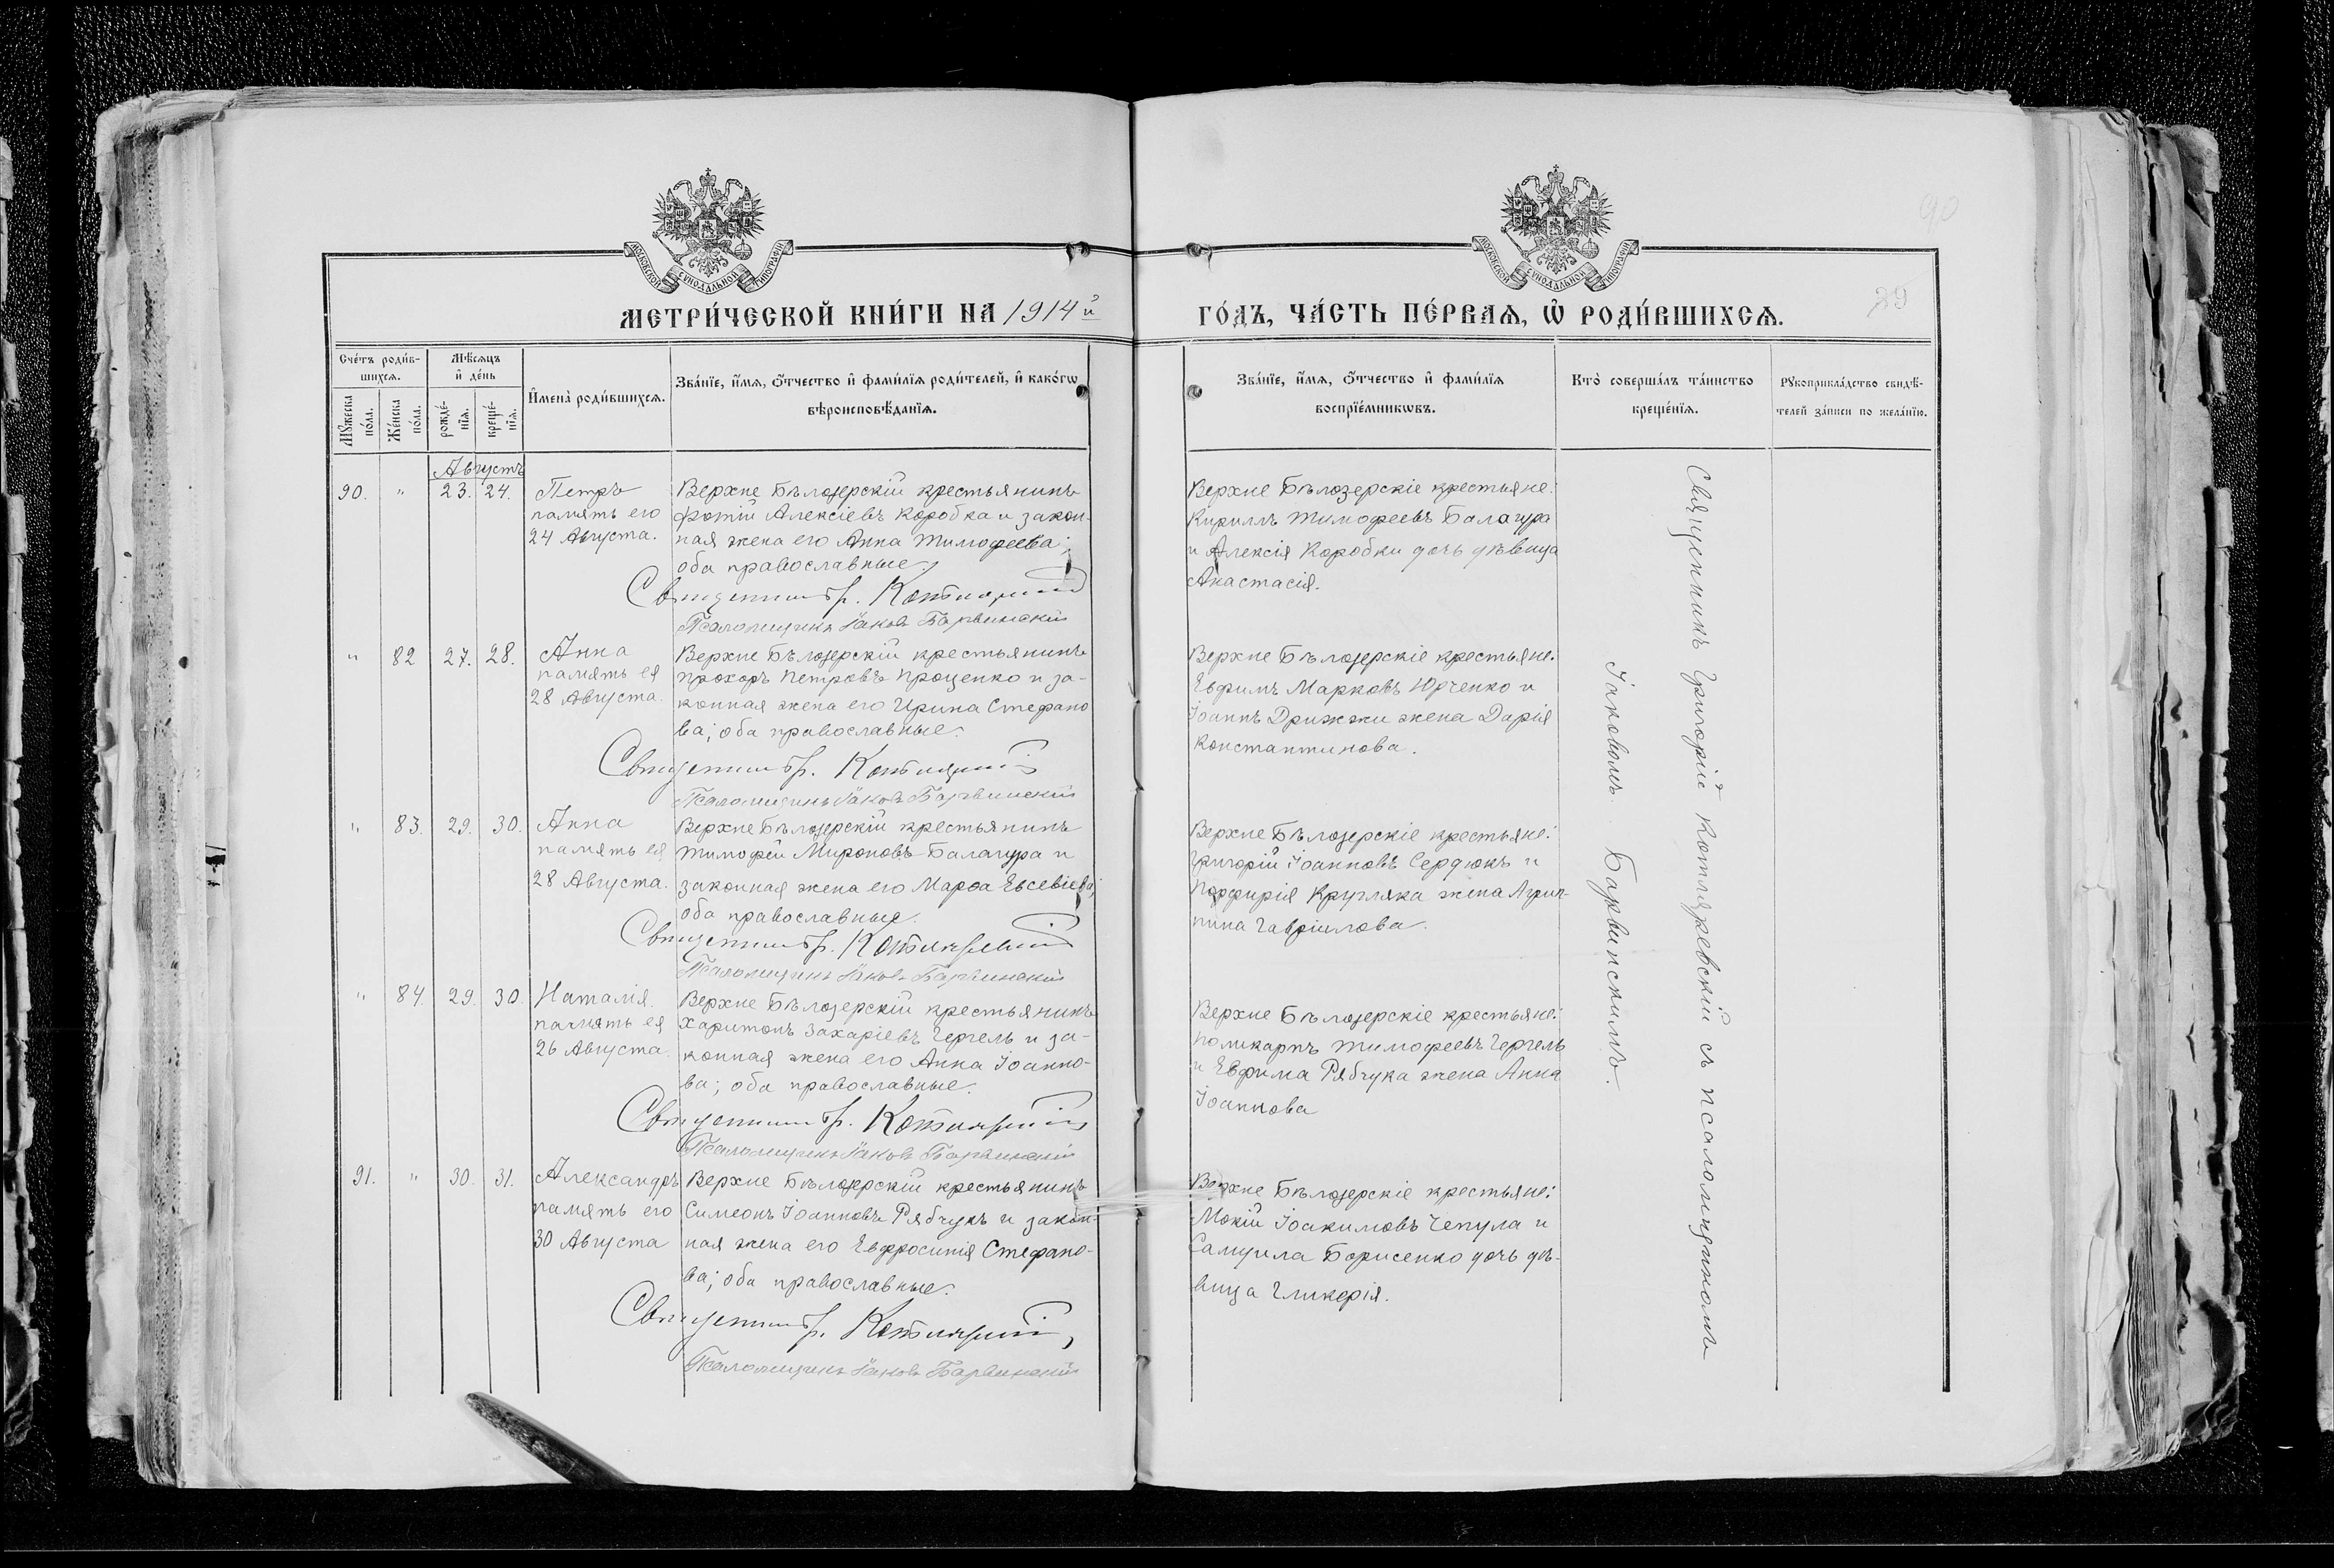 90
МОСКОВСКОЙ СѴНОДАЛЬНОЙ ТИПОГРАФІИ
МОСКОВСКОЙ СѴНОДАЛЬНОЙ ТИПОГРАФІИ
МЕТРИ́ЧЕСКОЙ КНИ́ГИ НА 1914й
ГО́ДЪ, ЧА́СТЬ ПЕ́РВАѦ, Ѡ҆ РОДИ́ВШИХСѦ.
29
Сче́тъ роди́в-
шихсѧ.
Мѣ́сѧцъ
и҆ де́нь
Мꙋ́жеска
по́ла.
Же́нска
по́ла.
рожде́-
нїѧ.
креще́-
нїѧ.
И҆мена̀ роди́вшихсѧ.
Зва́нїе, и҆́мѧ, ѻ҆́тчество и҆ фами́лїѧ роди́телей, и҆ како́гѡ
вѣроисповѣ́данїѧ.
Зва́нїе, и҆́мѧ, ѻ҆́тчество и҆ фами́лїѧ
воспрїе́мникѡвъ.
Кто̀ соверша́лъ та́инство
креще́нїѧ.
Рꙋкоприкла́дство свидѣ́-
телей за́писи по жела́нїю.
Августъ
90. " 23. 24.
Петръ
память его
24 Августа.
Верхне Бѣлозерскій крестьянинъ
Фотій Алексіевъ Коробка и закон-
ная жена его Анна Тимофеева;
оба православные.
Священникъ Гр. Котляревскій
Псаломщикъ Іаковъ Барвинскій
Верхне Бѣлозерскіе крестьяне:
Кириллъ Тимофеевъ Балагура
и Алексія Коробки дочь дѣвица
Анастасія.
" 82 27. 28.
Анна
память ея
28 Августа.
Верхне Бѣлозерскій крестьянинъ
Прохоръ Петровъ Проценко и за-
конная жена его Ирина Стефано
ва; оба православные.
Священникъ Гр. Котляревскій
Псаломщикъ Іаковъ Барвинскій
Верхне Бѣлозерскіе крестьяне:
Евфимъ Марковъ Юрченко и
Іоаннъ Дрижжи жена Дарія
Константинова.
" 83. 29. 30.
Анна
память ея
28 Августа.
Верхне Бѣлозерскій крестьянинъ
Тимофей Мироновъ Балагура и
законная жена его Марѳа Евсевіева;
оба православные.
Священникъ Гр. Котляревскій
Псаломщикъ Іаковъ Барвинскій
Верхне Бѣлозерскіе крестьяне:
Григорій Іоанновъ Сердюкъ и
Порфирія Кругляка жена Агрип-
пина Гавріилова.
" 84. 29. 30.
Наталія.
память ея
26 Августа.
Верхне Бѣлозерскій крестьянинъ
Харитонъ Захаріевъ Гергель и за-
конная жена его Анна Іоанно-
ва; оба православные.
Священникъ Гр. Котляревскій
Псаломщикъ Іаковъ Барвинскій
Верхне Бѣлозерскіе крестьяне:
Поликарпъ Тимофеевъ Гергель
и Евфима Рябчука жена Анна
Іоаннова
91. " 30. 31.
Александръ
память его
30 Августа
Верхне Бѣлозерскій крестьянинъ
Симеонъ Іоанновъ Рябчукъ и закон-
ная жена его Евфросинія Стефано-
ва; оба православные.
Священникъ Гр. Котляревскій,
Псаломщикъ Іаковъ Барвинскій
Верхне Бѣлозерскіе крестьяне:
Мокій Іоакимовъ Чепула и
Самуила Борисенко дочь дѣ-
вица Гликерія.
Священникъ Григорій Котляревскій съ псаломщикомъ
Іаковомъ Барвинскимъ.